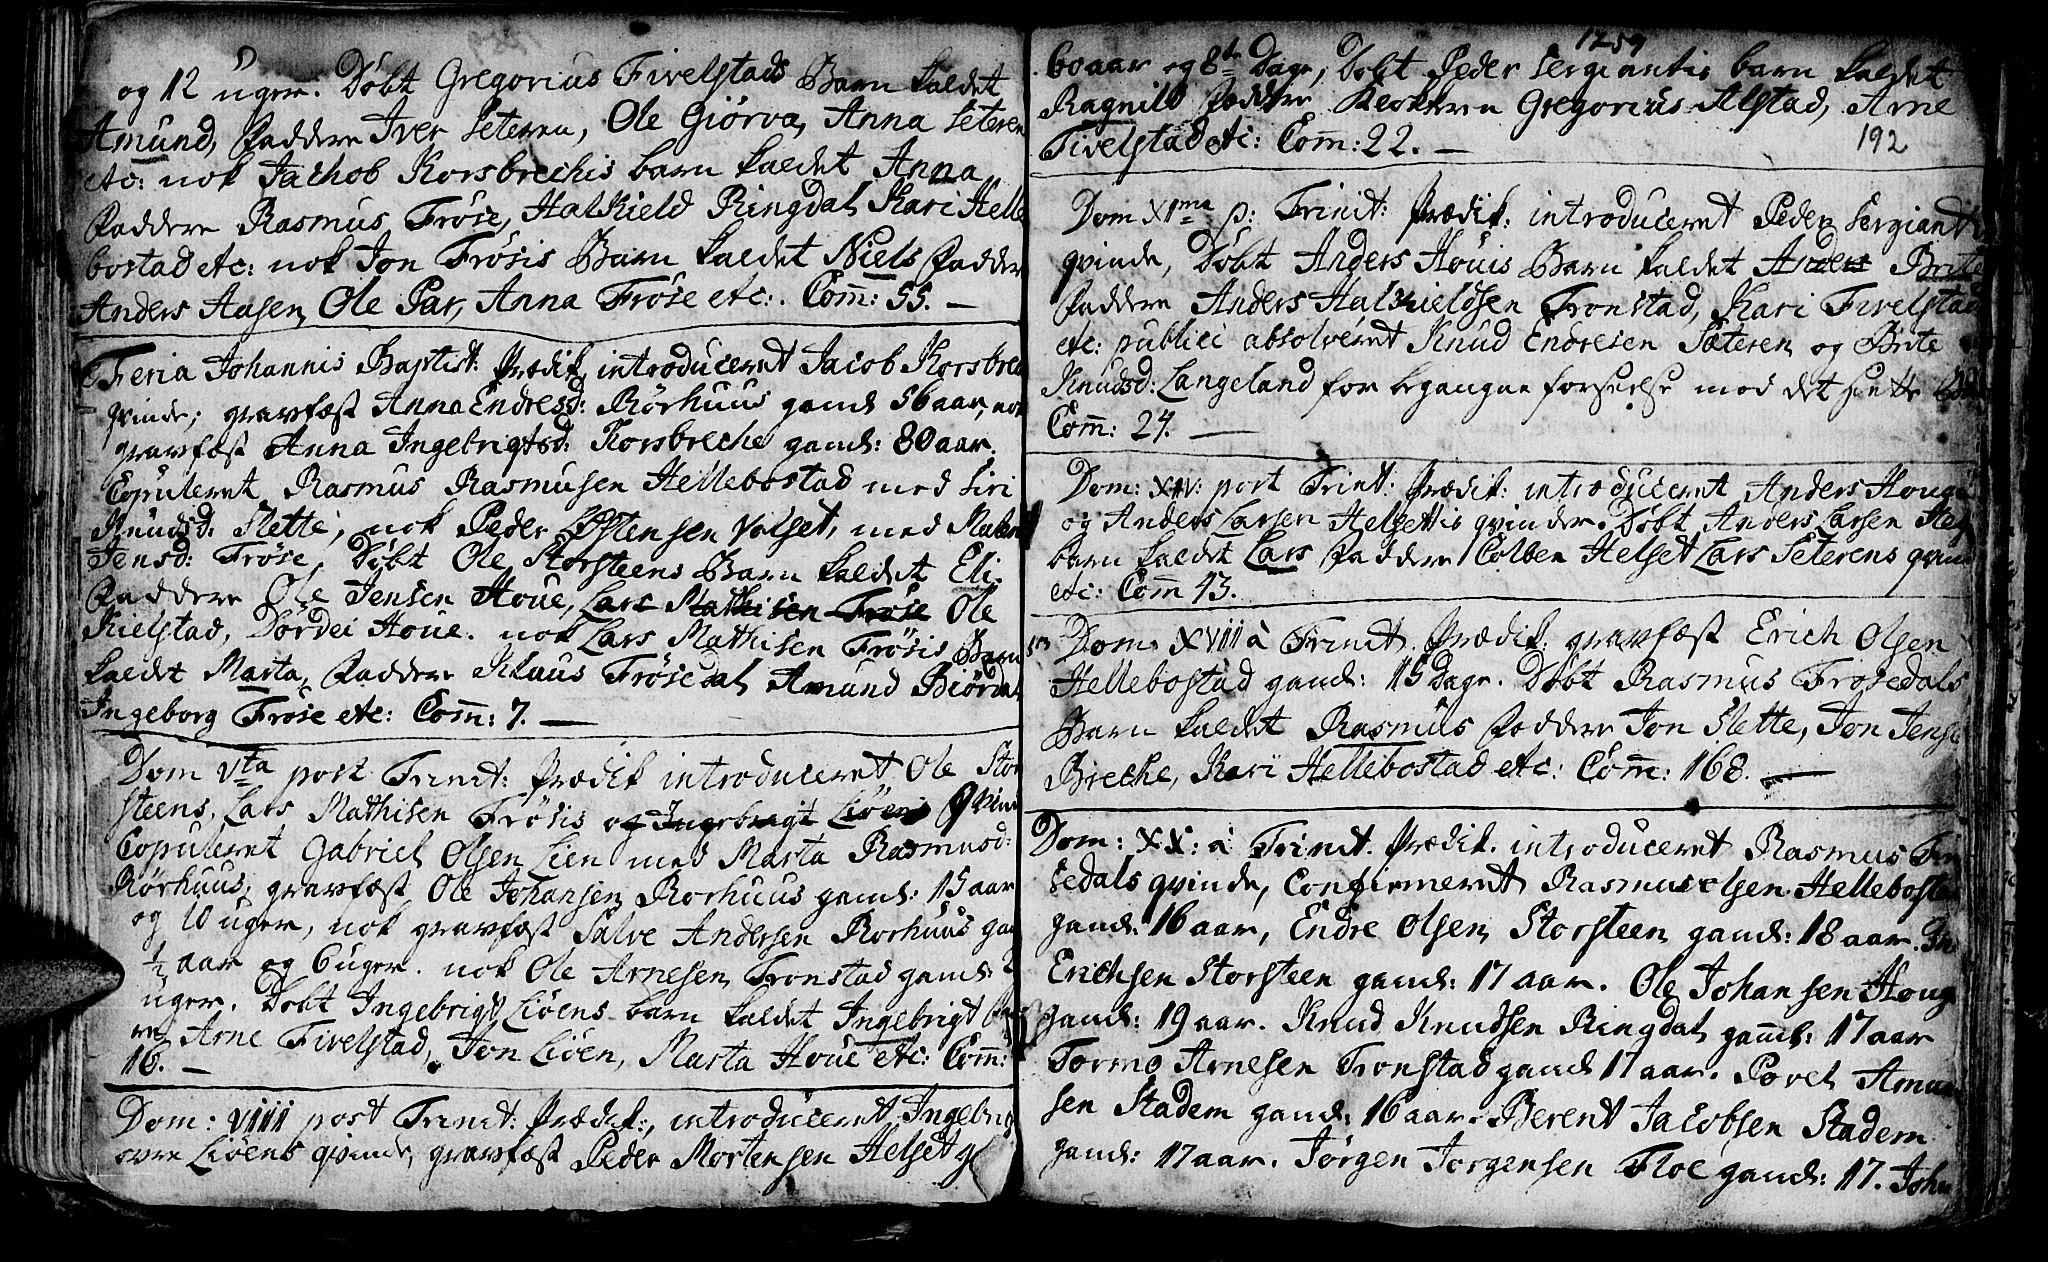 og 12 uger. Döbt Gregorius Fivelstads Barn kaldet
Amund, Faddere Iver Seteren, Ole Giörva, Anna Seteren
etc: nok Jachob Korsbrechis barn kaldet Anna
Faddere Rasmus Fröse, Halkield Ringdal, Kari Helle
bostad etc: nok Jon Frösis Barn kaldet Niels Fadder
Anders Aasen, Ole Par, Anna Fröse etc:. Com̄: 55. —
Feria Johannis Baptist: Prædik, introduceret Jacob Korsbrec
qvinde; gravfæst Anna Endresd: Rörhuus gamel 56 aar, nok
gravfæst Anna Ingebrigtsd: Korsbreche gamel: 80 aar.
Copuleret Rasmus Rasmusen Hellebostad med Siri
Knudsd: Slette, nok Peder Östensen Volset, med Malene
Jensd: Fröse, Döbt Ole Storsteens Barn kaldet Eli.
Faddere Ole Jensen Houe, Lars Mathisen Fröse Ole
Kielstad, Dordei Houe. nok Lars Mathisen Frösis Barn
kaldet Marta, Faddere Klaus Frösedal Amund Biördal
Ingeborg Fröse etc: Com̄: 7. —
Dom Vta post Trinit: Prædik introduceret Ole Stor
steens, Lars Mathisen Frösis og Ingebrigt Liöens qvind
Copuleret Gabriel Olsen Lien med Marta Rasmusd:
Rörhuus, gravfæst Ole Johansen Rorhuus gamel: 15 aar
og 10 uger, nok gravfæst Salve Andersen Rorhuus ga
½ aar og 6 uger. nok Ole Arnesen Tronstad gamel:
uger. Döbt Ingebrigt Liöens barn kaldet Ingebrigt Fad
re Arne Fivelstad, Jon Liöen, Marta Houe etc: Com̄:
16. —
Dom: VIII post Trinit: Prædik:, introduceret Ingebrig
Liöens qvinde, gravfæst Peder Mortensen Helset g
1759
60 aar og 8te Dage, Döbt Peder Sergiantis barn kaldet
Ragnild Faddere Gregorius Alstad, Arne
Fivelstad etc: Com̄: 22. —
192
Dom XIme p: Trinit: Prædik: introduceret Peder Sergiants
qvinde, Döbt Anders Houis Barn kaldet Anders Brite
Faddere Anders Halkieldsen Tronstad, Kari Fivelstad
etc: publici absolveret Knud Endresen Sæteren og Brite
Knudsd: Langeland for begangne forseelse mod det siette Bud
Com̄: 24. —
Dom: XIV: post Trinit: Prædik: introduceret Anders Houg
og Anders Larsen Helsettis qvinder. Döbt Anders Larsen Hels
barn kaldet Lars Faddere Colben Helset Lars Seterens qvin
etc: Com̄ 43.
Dom: XVIII à Trinit. Prædik: gravfæst Erich Olsen
Hellebostad gamel: 15 Dage. Döbt Rasmus Frosedals
Barn kaldet Rasmus Faddere Jon Slette, Jon Jense
Breche, Kari Hellebostad etc: Com̄: 168. —
Dom: XX: à Trinit. Prædik. introduceret Rasmus Frö
sedals qvinde, Confirmeret Rasmus Olsen Hellebostad
gamel: 16 aar, Endre Olsen Storsteen gamel: 18 aar.
Erichsen Storsteen gamel: 17 aar. Ole Johansen Houg
gamel: 19 aar. Knud Knudsen Ringdal gamel: 17 aar
Tormo Arnesen Tronstad gamel 17 aar. Povel Amun
sen Stadem gamel: 16 aar. Berent Jacobsen Stadem
gamel: 17 aar. Jörgen Jorgensen Floe gamel: 17. Joha